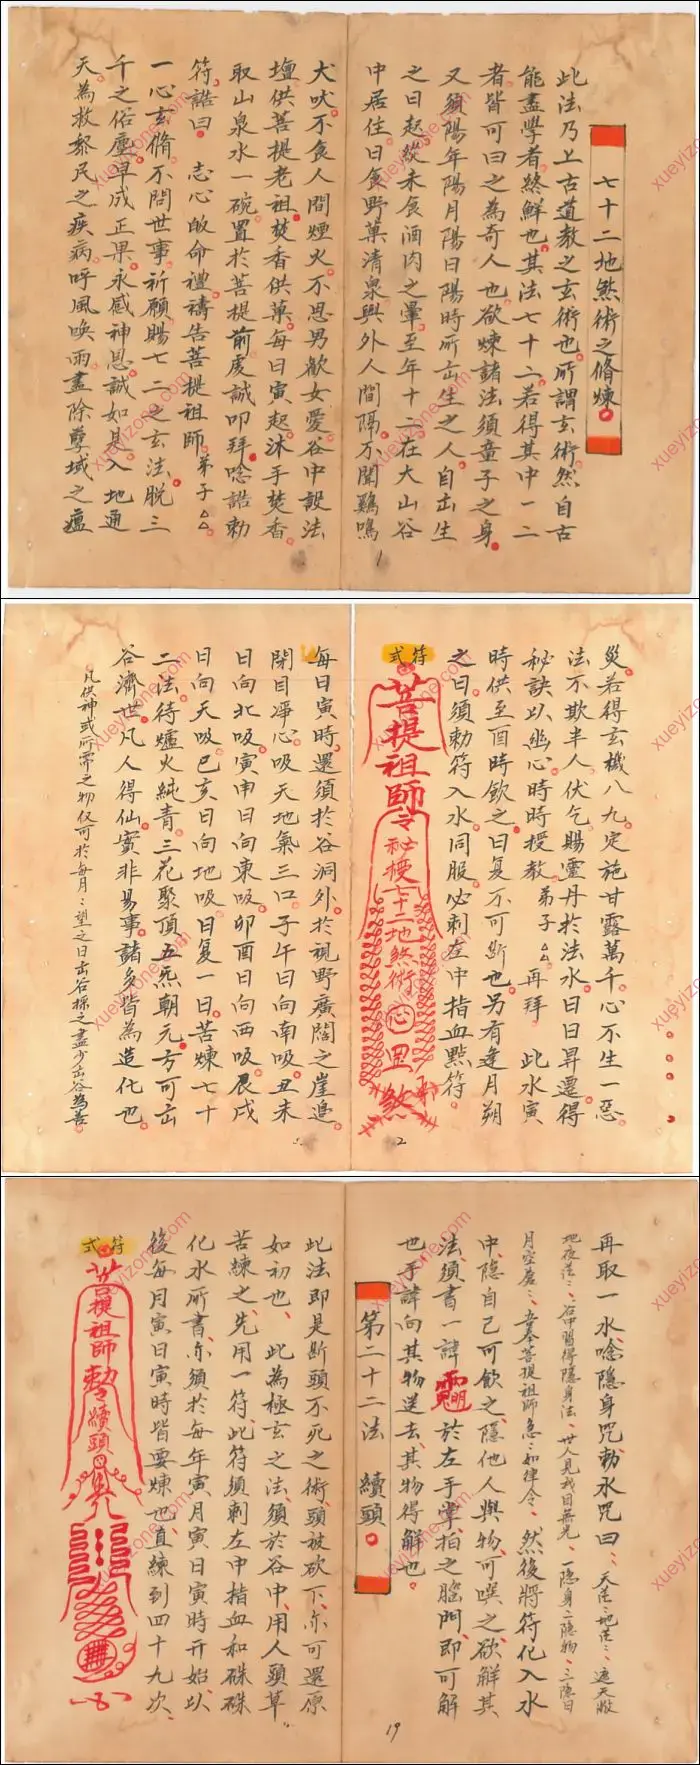 七十二地煞術之脩煉
此法乃上古道教之玄術也所謂玄術然自古
能盡學者終鮮也其法七十二若得其中一二
者皆可曰之為奇人也欲煉諸法須童子之身
又須陽年陽月陽日陽時所出生之人自出生
之日起從未食酒肉之暈至年十二在大山谷
中居住日食野菓清泉與外人間隔不聞鷄鳴
犬吠不食人間煙火不思男歡女愛谷中設法
壇供菩提老祖焚香供菓每日寅起沐手焚香
取山泉水一碗置於菩提前虔誠叩拜唸誥勅
符誥曰 志心皈命禮禱告菩提祖師弟子△△
一心玄脩不問世事祈願賜七二之玄法脱三
千之俗塵早成正果永感神恩誠如是入地通
天為救黎民之疾病呼風喚雨盡除孽域之瘟
災若得玄機八九定施甘露萬千心不生一惡
法不欺半人伏乞賜靈丹於法水日日昇遷得
秘訣以幽心時時授教弟子△△再拜 此水寅
時供至酉時飲之日复不可斷也另有逢月朔
之日須勅符入水同服必刺左中指血點符
符式
菩提祖師
令秘授七十二地煞術
心
煞
每日寅時還須於谷洞外於視野廣闊之崖邊
閉目凈心吸天地氣三口子午日向南吸丑未
日向北吸寅申日向東吸卯酉日向西吸辰戌
日向天吸巳亥日向地吸日复一日苦煉七十
二法待爐火純青三花聚頂五炁朝元方可出
谷濟世凡人得仙實非易事諸多皆為造化也
凡供神或所需之物仅可於每月:望之日出谷採之盡少出谷為善
2
再取一水唸隐身咒勅水咒曰:天茫:地茫:遮天蔽
地夜茫:谷中習得隱身法世人見我目無光一隐身二隐物三隐日
月空蒼:吾奉菩提祖師急:如律令 然後將符化入水
中隐自己可飲之隱他人與物可噀之欲解其
法須書一諱 於左手掌拍之腦門即可解
也手諱向其物送去其物得解也
第二十二法 續頭
此法即是斷頭不死之術頭被砍下亦可還原
如初也 此為極玄之法須於谷中用人頭草
苦練之先用一符此符須刺左中指血和硃硃
化水所書亦須於每年寅月寅日寅時开始以
後每月寅日寅時皆要煉也直練到四十九次
符式
菩提祖師勅令續頭
19
xueyizone.com